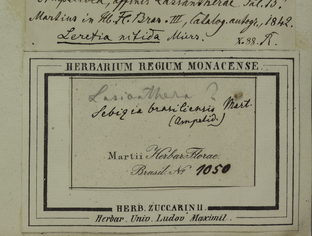 affinis Lasiantherae
Martius in Hb. Fl. Bras. III, Catalog. autogr. 1842.
Leretia nitida Miers. X. 88. R.
HERBARIUM REGIUM MONACENSE.
Lasianthera ?
Sebizia brasiliensis Mart.
(Ampelid.)
Martii Herbar. Florae
Brasil. No 1050
HERB. ZUCCARINII
Herbar. Univ. Ludov. Maximil.